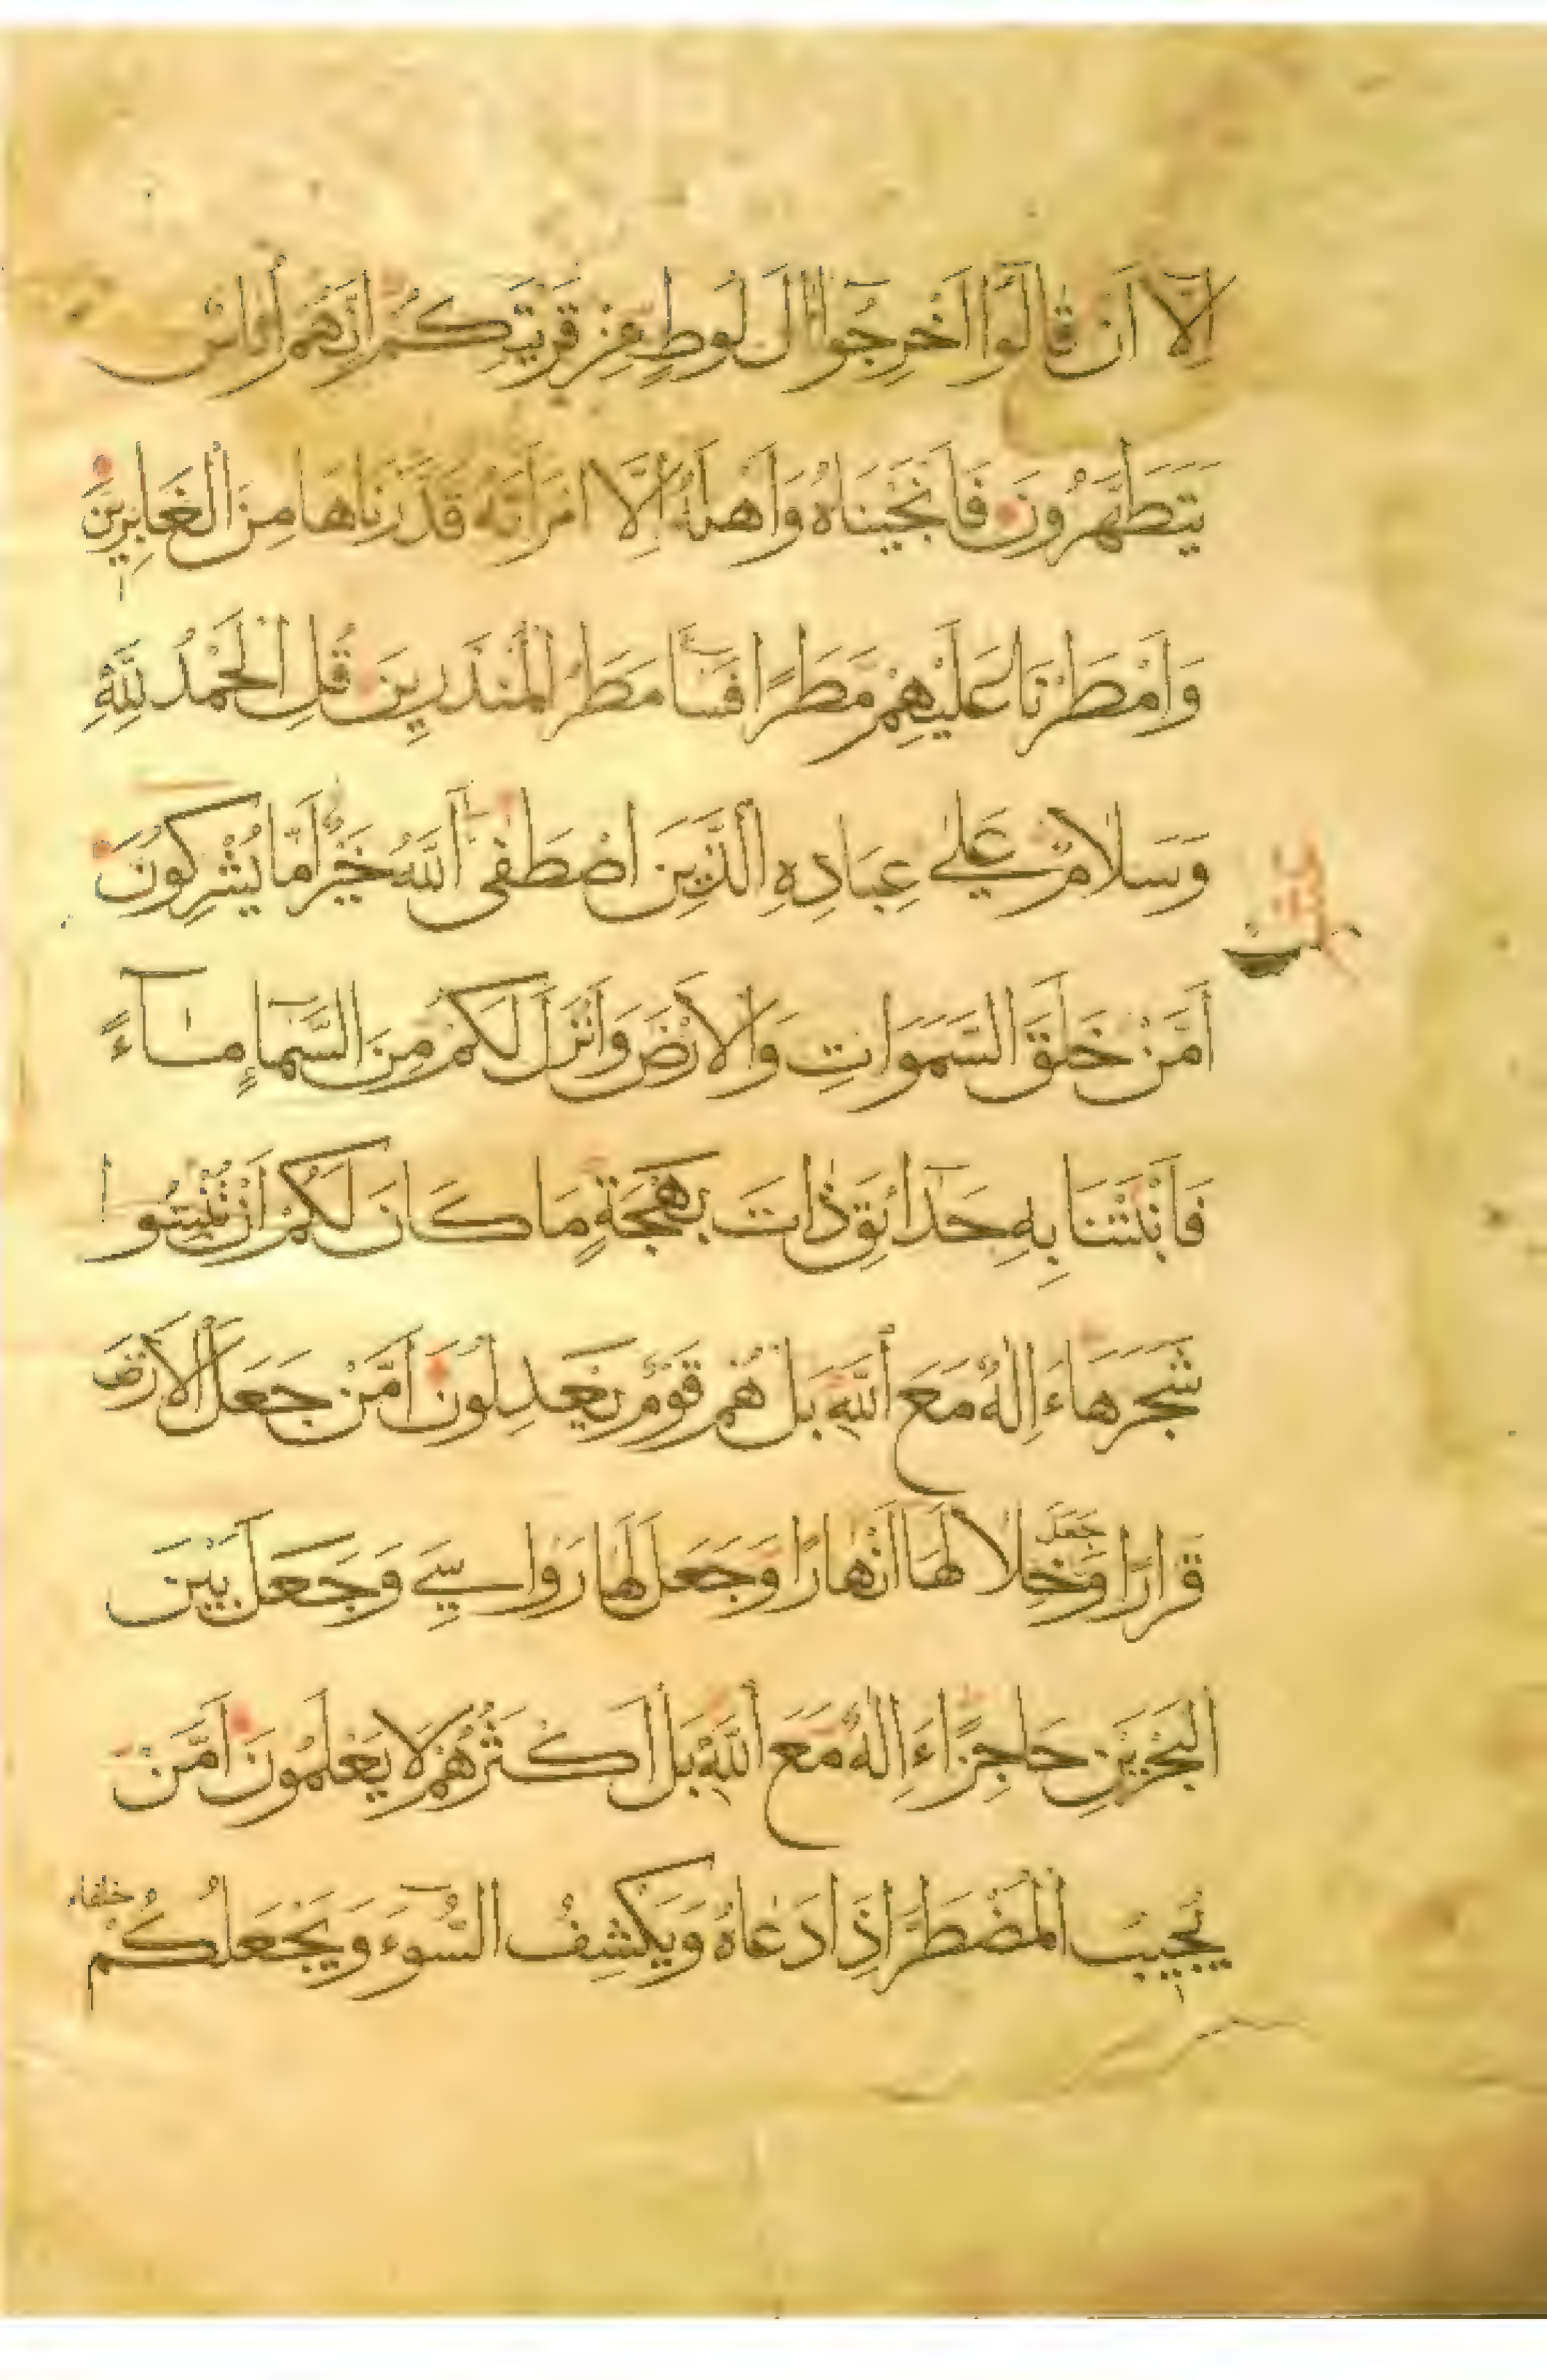 اِلَّا اَنْ قَالُوَّا اَخْرِجُوآا اٰلَ لُوطٍ مِنْ قَرْيَتِكُمْ اِنَّهُمْ اُنَاسٌ
يَتَطَهَّرُونَ فَاَنْجَيْنَاهُ وَاَهْلَهُ اِلَّا امْرَاَتَهُ قَدَّرْنَاهَا مِنَ الْغَابِرِينَ
وَاَمْطَرْنَا عَلَيْهِمْ مَطَرًا فَسَآءَ مَطَرُ الْمُنْذَرِينَ قُلِ الْحَمْدُ لِلّٰهِ
وَسَلَامٌ عَلٰى عِبَادِهِ الَّذِينَ اصْطَفٰى آللّٰهُ خَيْرٌ اَمَّا يُشْرِكُونَ
اَمَّنْ خَلَقَ السَّمَوَاتِ وَالْاَرْضَ وَاَنْزَلَ لَكُمْ مِنَ السَّمَآءِ مَآءً
فَاَنْبَتْنَا بِهِ حَدَآئِقَ ذَاتَ بَهْجَةٍ مَا كَانَ لَكُمْ اَنْ تُنْبِتُوا
شَجَرَهَا ءَاِلٰهٌ مَعَ اللّٰهِ بَلْ هُمْ قَوْمٌ يَعْدِلُونَ اَمَّنْ جَعَلَ الْاَرْضَ
قَرَارًا وَجَعَلَ خِلَالَهَا اَنْهَارًا وَجَعَلَ لَهَا رَوَاسِيَ وَجَعَلَ بَيْنَ
الْبَحْرَيْنِ حَاجِزًا ءَاِلٰهٌ مَعَ اللّٰهِ بَلْ اَكْثَرُهُمْ لَا يَعْلَمُونَ اَمَّنْ
يُجِيبُ الْمُضْطَرَّ اِذَا دَعَاهُ وَيَكْشِفُ السُّوٓءَ وَيَجْعَلُكُمْ خلفاء